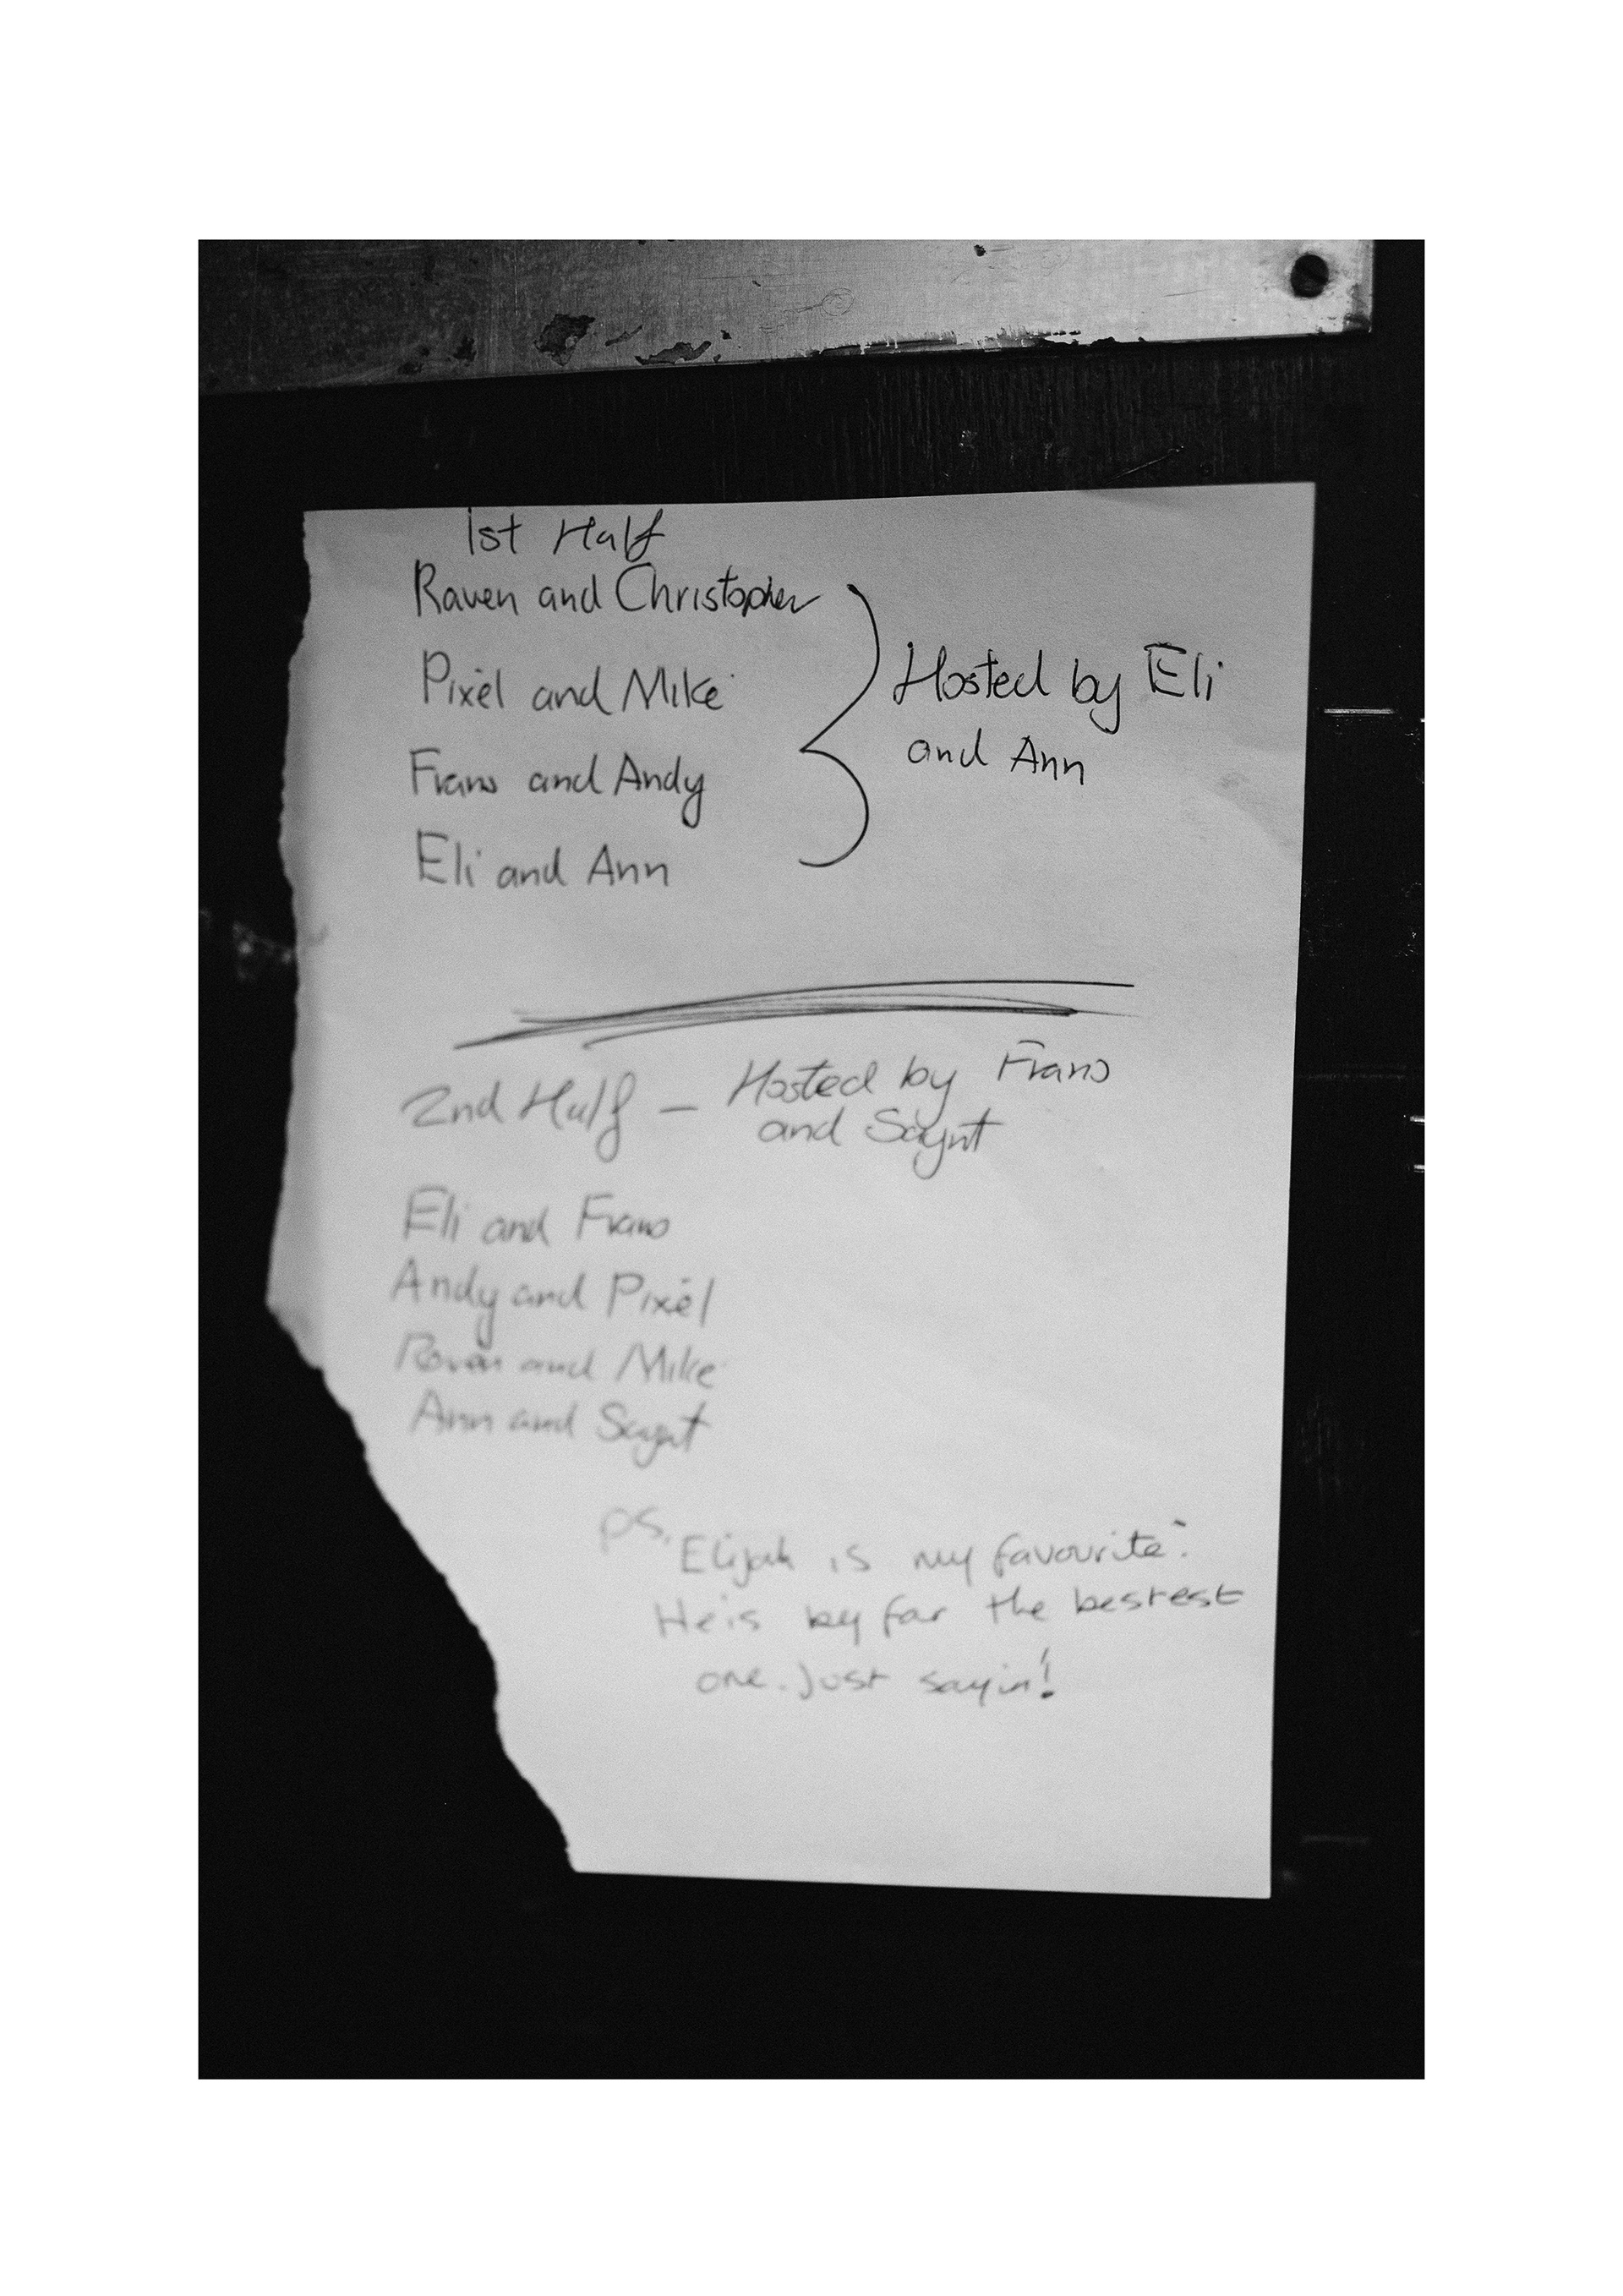 1st Half
Raven and Christopher
Pixel and Mike
Frans and Andy
Eli and Ann
Hosted by Eli
and Ann
2nd Half – Hosted by Frans
and Saynt
Eli and Frans
Andy and Pixel
Raven and Mike
Ann and Saynt
ps. Elijah is my favourite.
He is by far the bestest
one. Just sayin!